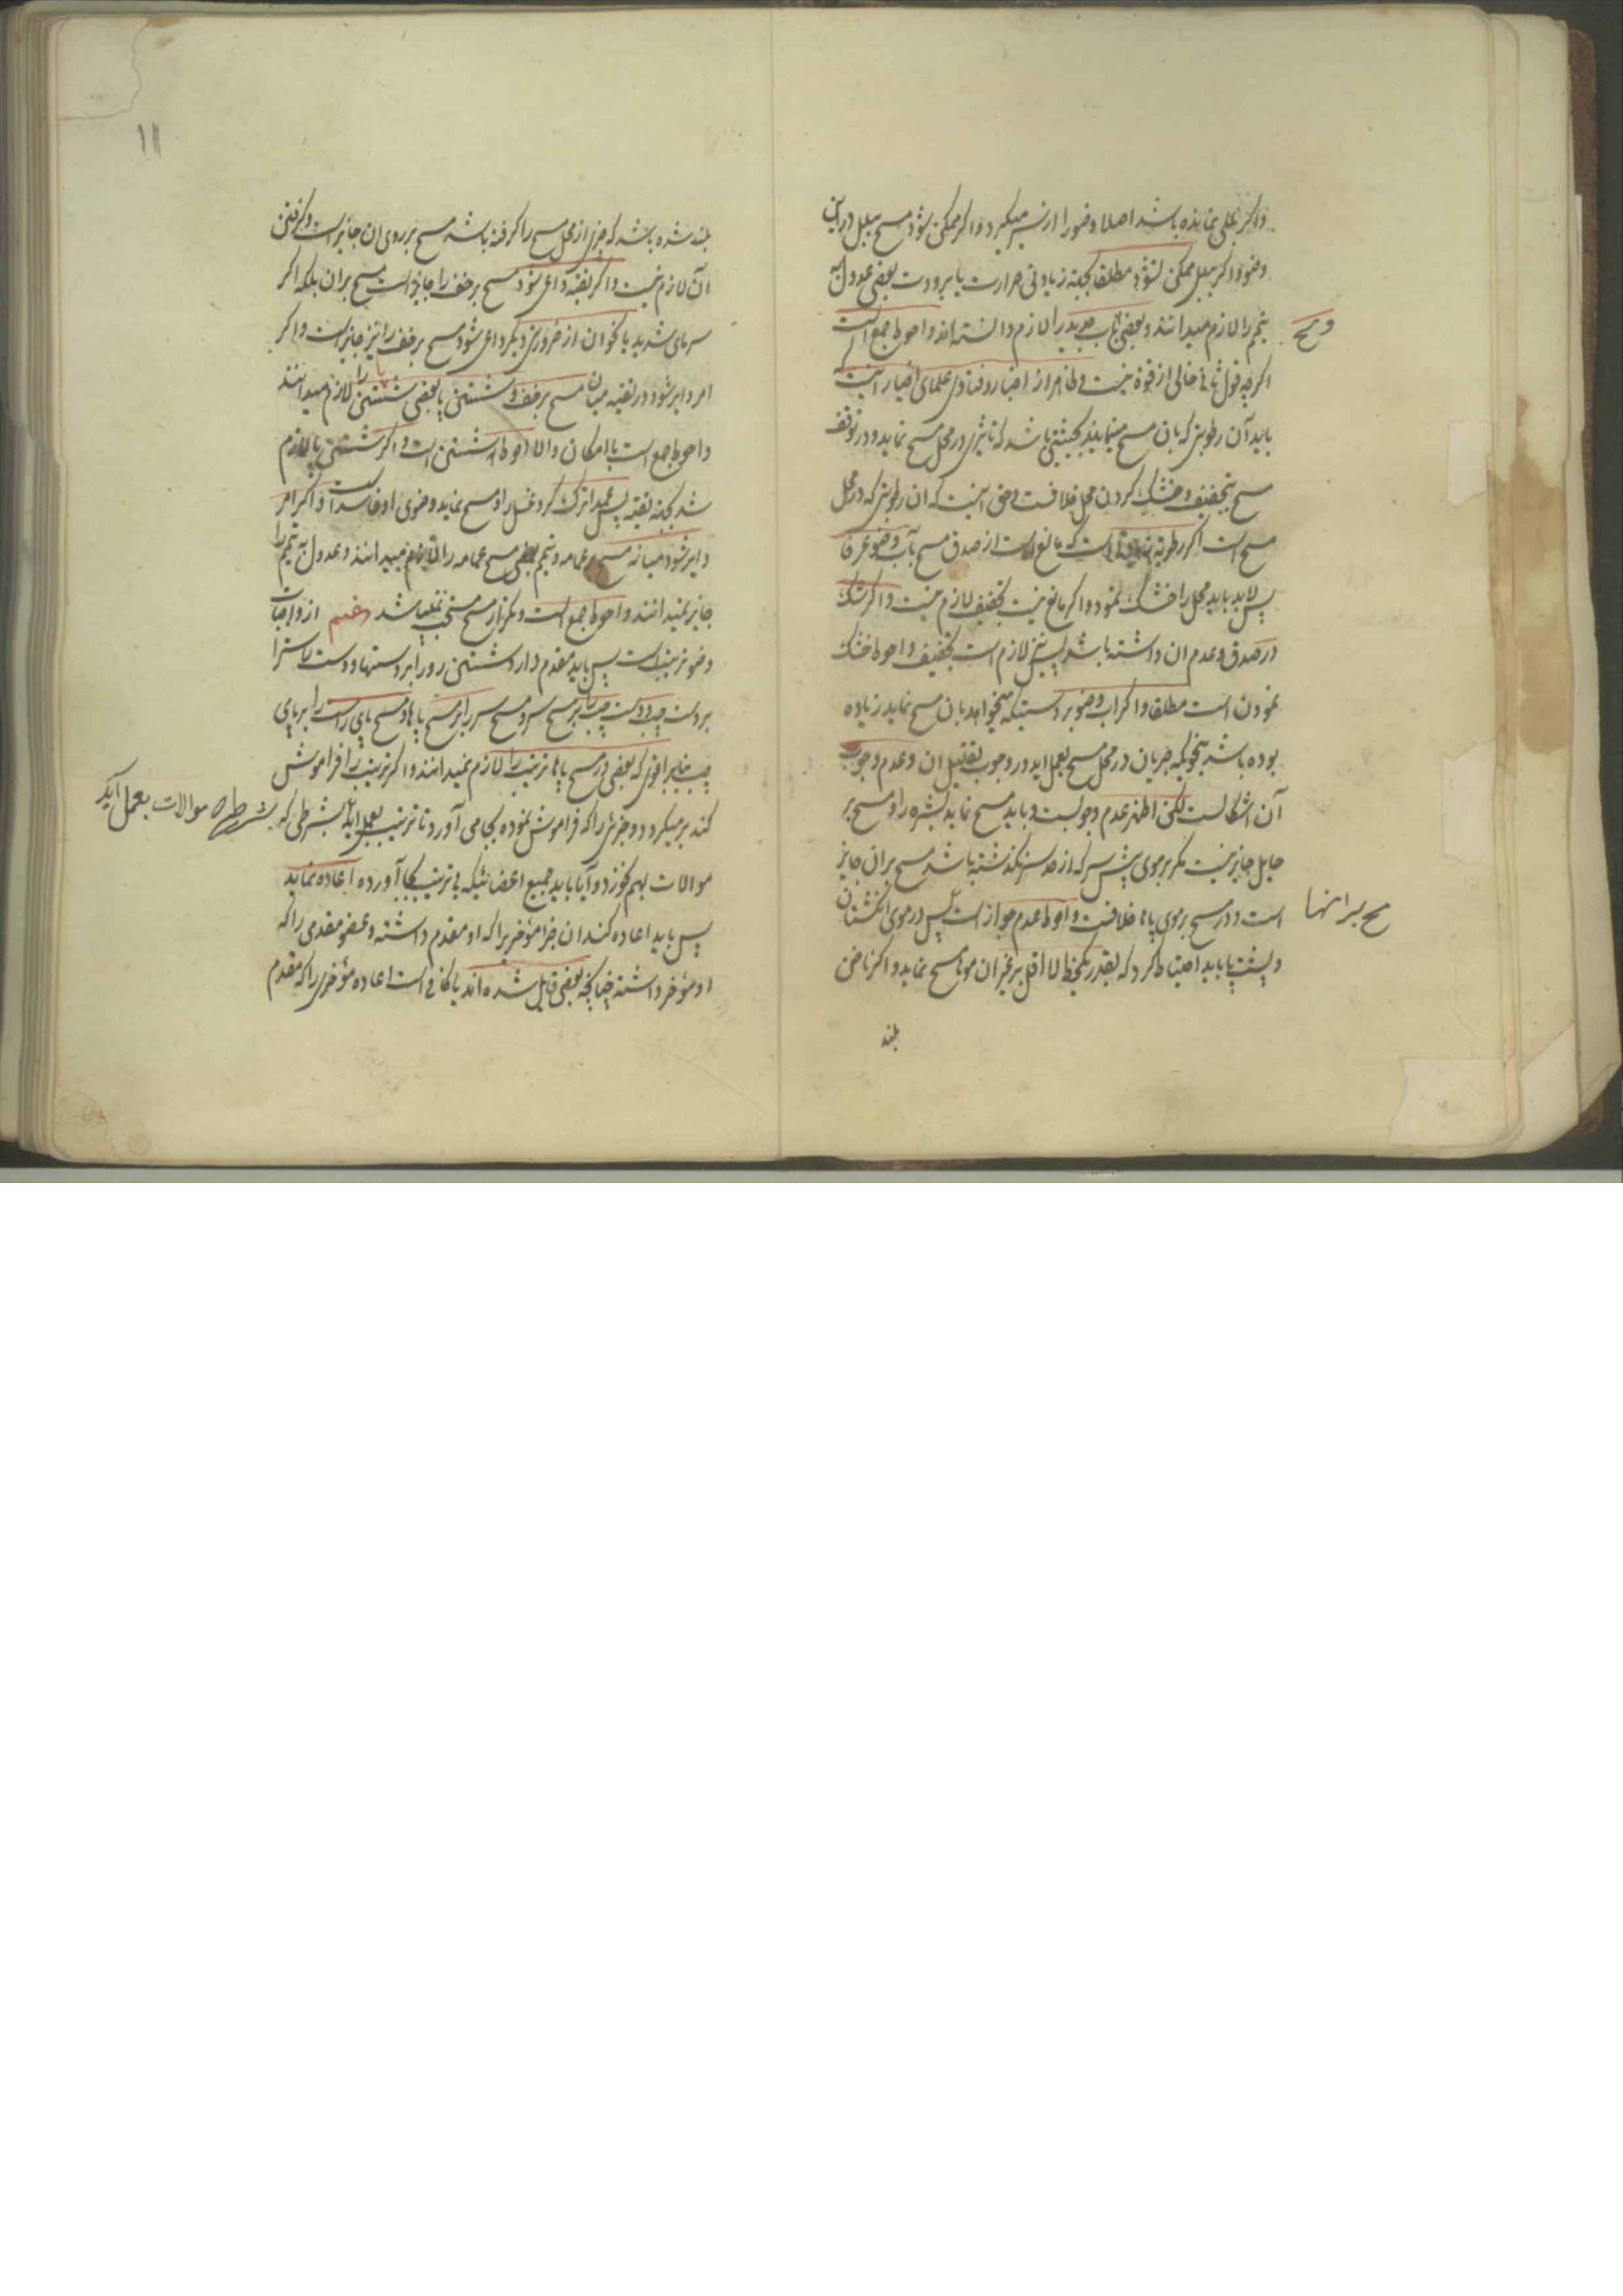 واکر بللی نمانده باشد اصلا وضورا از سر میکیرد واکر ممکن نشود مسح ببلل دراین
وضوو اکر ببلل ممکن نشود مطلقا بجهة زیادتی حرارت یا برودت بعضی عدول به
تیمم را لازم میدانند وبعضی بآب جدید را لازم دانسته اند واحوط جمع است
اکرچه قول ثانی خالی از قوة نیست وظاهر از اخبار وفتاوی علمای اخیار اینست که
باید آن رطوبتی که بان مسح مینمایند بحیثیتی باشد که تاثیری در محل مسح نماید ودر توقف
مسح بتجفیف وخشک کردن محل خلافست وحق اینست که ان رطوبتی که در محل
مسح است اکر رطوبة است که مانع است از صدق مسح بآب وضو عرفا
پس لابد باید محل را خشک نمود واکر مانع نیست تجفیف لازم نیست واکر شک
در صدق وعدم ان داشته باشد پس نیز لازم است تجفیف واحوط خشک
نمودن است مطلقا واکر اب وضو بر دستیکه میخواهد بان مسح نماید زیاده
بوده باشد بنحویکه جریان در محل مسح بعمل اید در وجوب تقلیل ان وعدم وجوب
آن اشکالست لکن اظهر عدم وجوبست وباید مسح نماید بشره را ومسح بر
حایل جایز نیست مکر بر موی پیش سر که از حد سر نکذشته باشد مسح بران جایز
است ودر مسح بر موی پاها خلافست واحوط عدم جواز است پس در موی انکشتان
وپشت پا باید احتیاط کرد که بقدر یکخط لااقل بر غیر ان موها مسح نماید واکر ناخن
بلند
مسح بر انها
بلند شده باشد که جزئی از محل مسح را کرفته باشد مسح بر روی ان جایز است وکرفتن
آن لازم نیست واکر تقیه داعی شود مسح بر خف را جایز است مسح بران بلکه اکر
سرمای شدید یا نحوان از ضروری دیکر داعی شود مسح بر خف را نیز جایز است واکر
امر دایر شود در تقیه میان مسح بر خف وشستن پا بعضی شستن را لازم میدانند
واحوط جمع است با امکان والا احوط شستن است واکر شستن پا لازم
شد بجهة تقیه پس عمدا ترک کرد غسل را ومسح نماید وضوی او فاسد است واکر امر
دایر شود میانه مسح عمامه وتیمم بعضی مسح عمامه را لازم میدانند وعدول به تیمم را
جایز نمیدانند واحوط جمع است وتکرار مسح مستحب نمیباشد ششم از واجبات
وضو ترتیب است پس باید مقدم دارد شستن رو را بر دستها ودست راست را
بر دست چپ ودست چپ را بر مسح سر ومسح سر را بر مسح پاها ومسح پای راست را بر پای
چپ بنابر اقوی که بعضی در مسح پاها ترتیب را لازم نمیدانند واکر ترتیب را فراموش
کند بر میکردد وجزئی را که فراموش نموده بجا می آورد تا ترتیب بعمل اید بشرطی که
بشرط موالات بعمل آید
موالات بهم نخورد وآیا باید جمیع اعضائیکه بی ترتیب بجا آورده اعاده نماید
پس باید اعاده کند ان جزء مؤخر را که او مقدم داشته وعضو مقدمی را که
او مؤخر داشته چنانکه بعضی قایل شده اند یا کافی است اعاده مؤخری را که مقدم